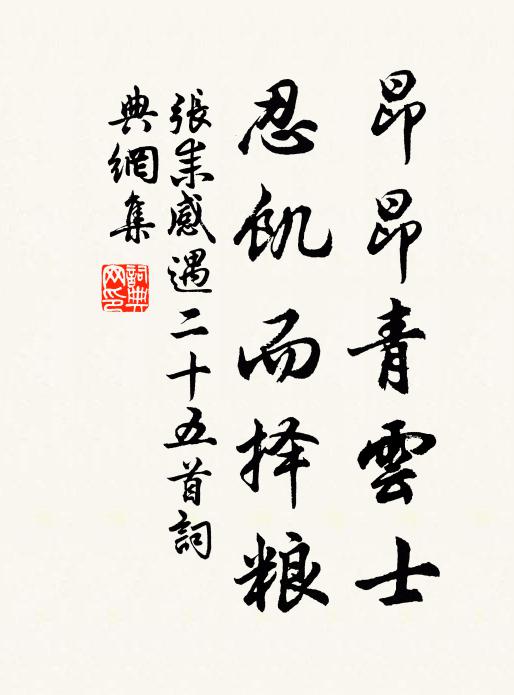 昂昂青雲士
忍飢而择粮
張耒感遇二十五首詞
典網集
詞典网印